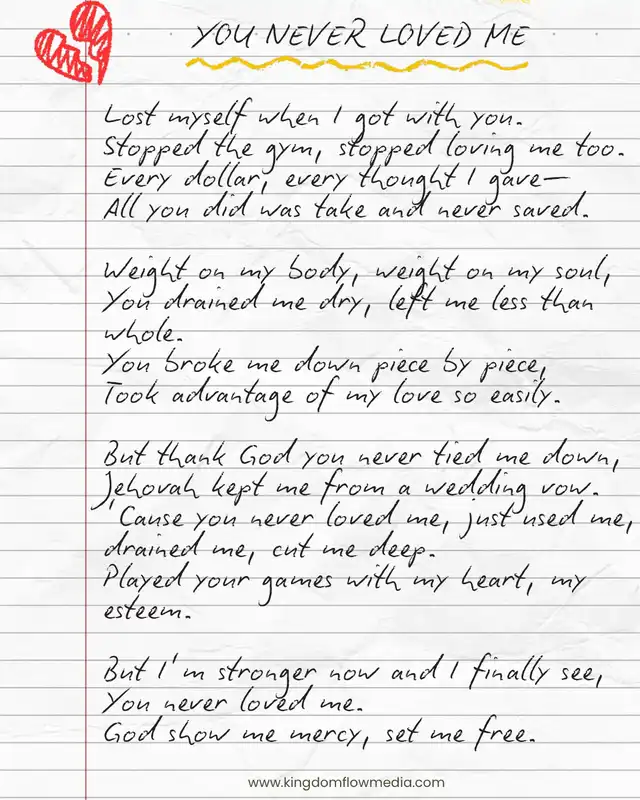 YOU NEVER LOVED ME
Lost myself when I got with you.
Stopped the gym, stopped loving me too.
Every dollar, every thought I gave—
All you did was take and never saved.
Weight on my body, weight on my soul,
You drained me dry, left me less than
whole.
You broke me down piece by piece,
Took advantage of my love so easily.
But thank God you never tied me down,
Jehovah kept me from a wedding vow.
'Cause you never loved me, just used me,
drained me, cut me deep.
Played your games with my heart, my
esteem.
But I'm stronger now and I finally see,
You never loved me.
God show me mercy, set me free.
www.kingdomflowmedia.com